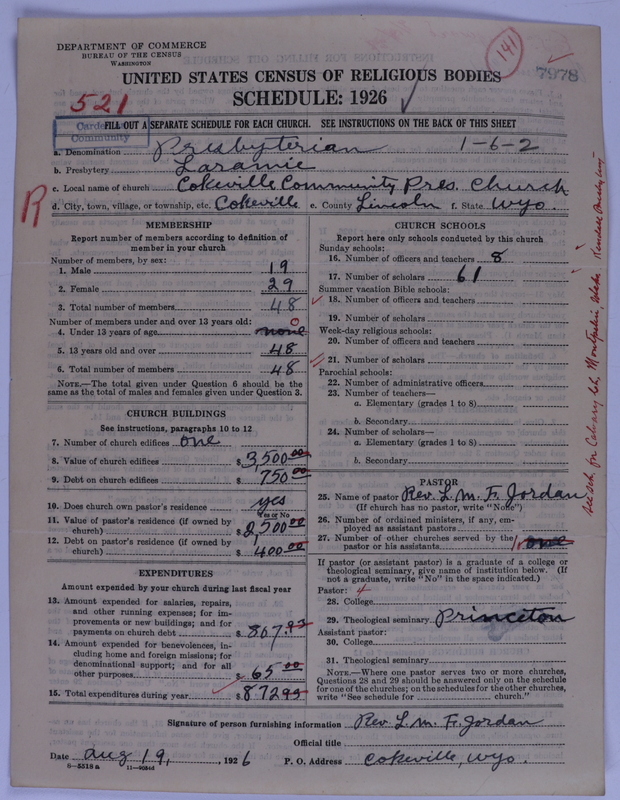 DEPARTMENT OF COMMERCE
BUREAU OF THE CENSUS
WASHINGTON
141
7978
UNITED STATES CENSUS OF RELIGIOUS BODIES
521
SCHEDULE: 1926
Community
FILL OUT A SEPARATE SCHEDULE FOR EACH CHURCH. SEE INSTRUCTIONS ON THE BACK OF THIS SHEET
a. Denomination Presbyterian 1-6-2
b. Presbytery Laramie
c. Local name of church Cokeville Community Pres. Church
R
d. City, town, village, or township, etc. Cokeville e. County Lincoln f. State Wyo.
MEMBERSHIP
Report number of members according to definition of
member in your church
Number of members, by sex:
1. Male 19
2. Female 29
3. Total number of members 48
Number of members under and over 13 years old:
4. Under 13 years of age none 0
5. 13 years old and over 48
6. Total number of members 48
NOTE.—The total given under Question 6 should be the
same as the total of males and females given under Question 3.
CHURCH BUILDINGS
See instructions, paragraphs 10 to 12
7. Number of church edifices one
8. Value of church edifices $3,500.00
9. Debt on church edifices $750.00
10. Does church own pastor's residence yes
Yes or No
11. Value of pastor's residence (if owned by
church) $2,500.00
12. Debt on pastor's residence (if owned by
church) $400.00
EXPENDITURES
Amount expended by your church during last fiscal year
13. Amount expended for salaries, repairs,
and other running expenses; for im-
provements or new buildings; and for
payments on church debt $807.93
14. Amount expended for benevolences, in-
cluding home and foreign missions; for
denominational support; and for all
other purposes $65.00
15. Total expenditures during year $872.93
CHURCH SCHOOLS
Report here only schools conducted by this church
Sunday schools:
16. Number of officers and teachers 8
17. Number of scholars 61
Summer vacation Bible schools:
18. Number of officers and teachers
19. Number of scholars
Week-day religious schools:
20. Number of officers and teachers
21. Number of scholars
Parochial schools:
22. Number of administrative officers
23. Number of teachers—
a. Elementary (grades 1 to 8)
b. Secondary
24. Number of scholars—
a. Elementary (grades 1 to 8)
b. Secondary
PASTOR
25. Name of pastor Rev. L. M. F. Jordan
(If church has no pastor, write "None")
26. Number of ordained ministers, if any, em-
ployed as assistant pastors
27. Number of other churches served by the
pastor or his assistants 1 one
If pastor (or assistant pastor) is a graduate of a college or
theological seminary, give name of institution below. (If
not a graduate, write "No" in the space indicated.)
Pastor:
28. College
29. Theological seminary Princeton
Assistant pastor:
30. College
31. Theological seminary
NOTE.—Where one pastor serves two or more churches,
Questions 28 and 29 should be answered only on the schedule
for one of the churches; on the schedules for the other churches,
write "See schedule for church."
See sch. for Calvary Ch, Montpelier, Idaho
Signature of person furnishing information Rev. L. M. F. Jordan
Official title
Date Aug 19, , 1926 P. O. Address Cokeville, Wyo.
8-5518a